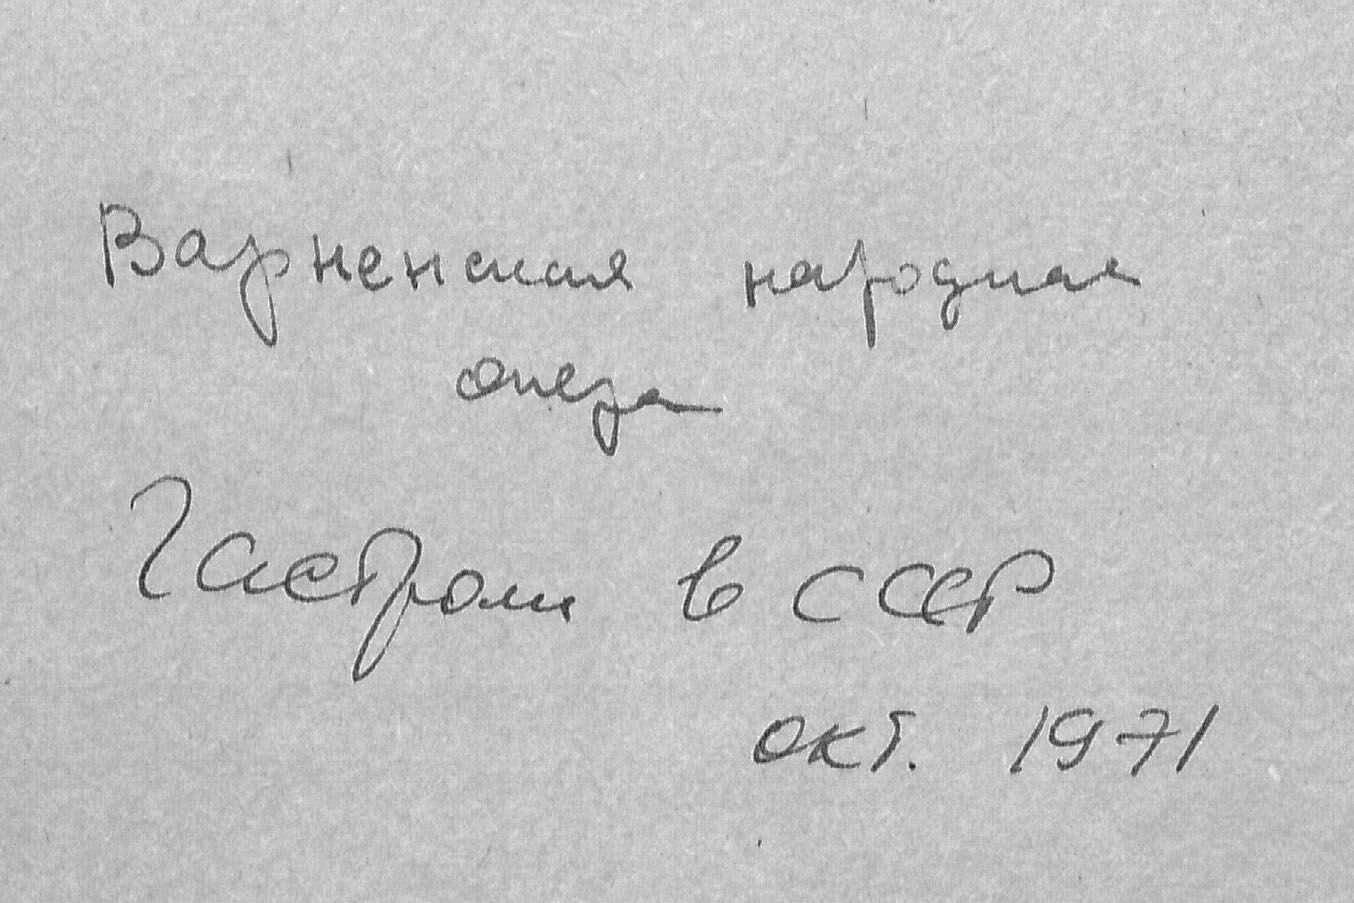 Варненская народная
опера
Гастроли в СССР
окт. 1971